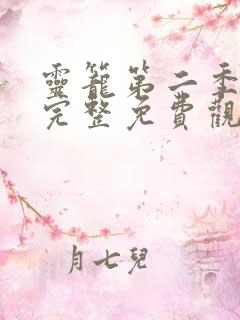 靈籠第二季
完整免費觀
月七兒